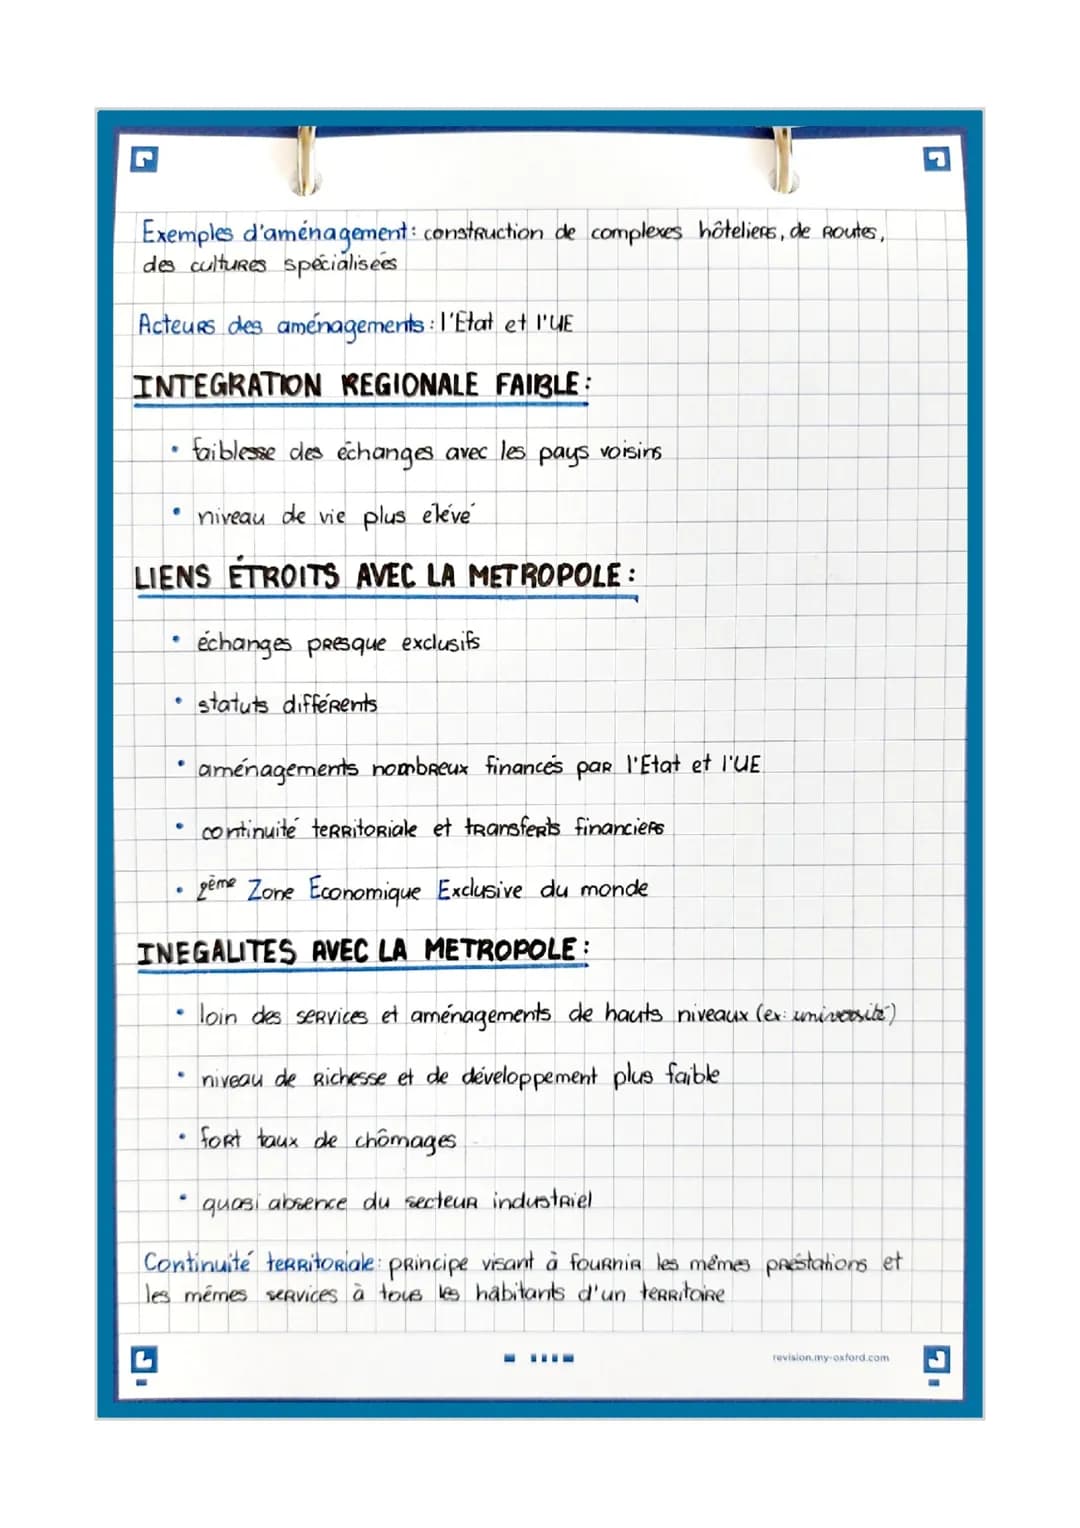 Exemples d'aménagement: construction de complexes hôteliers, de routes,
des cultures spécialisées
Acteurs des aménagements: l'Etat et l'UE
INTEGRATION REGIONALE FAIBLE:
• faiblesse des échanges avec les pays voisins
• niveau de vie plus élevé
LIENS ÉTROITS AVEC LA METROPOLE:
• échanges presque exclusifs
• statuts différents
• aménagements nombreux financés par l'Etat et l'UE
• continuité territoriale et transferts financiers
• 2ème Zone Economique Exclusive du monde
INEGALITES AVEC LA METROPOLE:
• loin des services et aménagements de hauts niveaux (ex: université)
• niveau de richesse et de développement plus faible
• fort taux de chômages
• quasi absence du secteur industriel
Continuité territoriale: principe visant à fournir les mêmes prestations et
les mêmes services à tous les habitants d'un territoire
revision.my-oxford.com